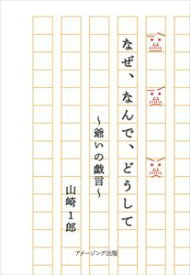 なぜ、なんで、どうして
～爺いの戯言～
山崎1郎
アメージング出版